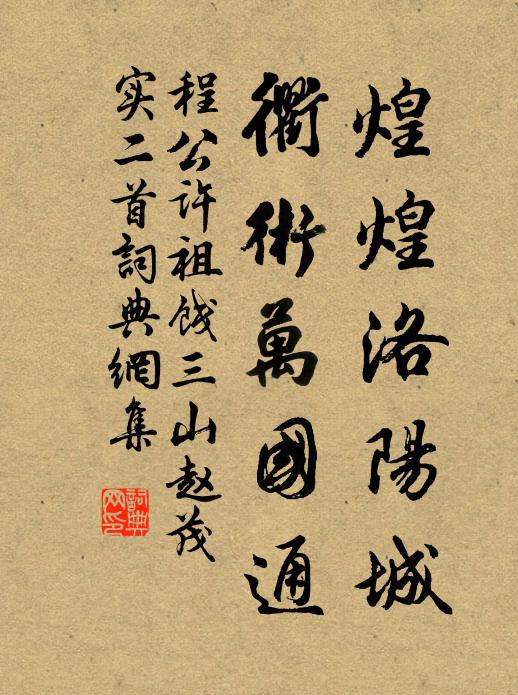 煌煌洛陽城
衢術萬國通
程公许祖饯三山赵茂
实二首詞典網集
詞典
网印